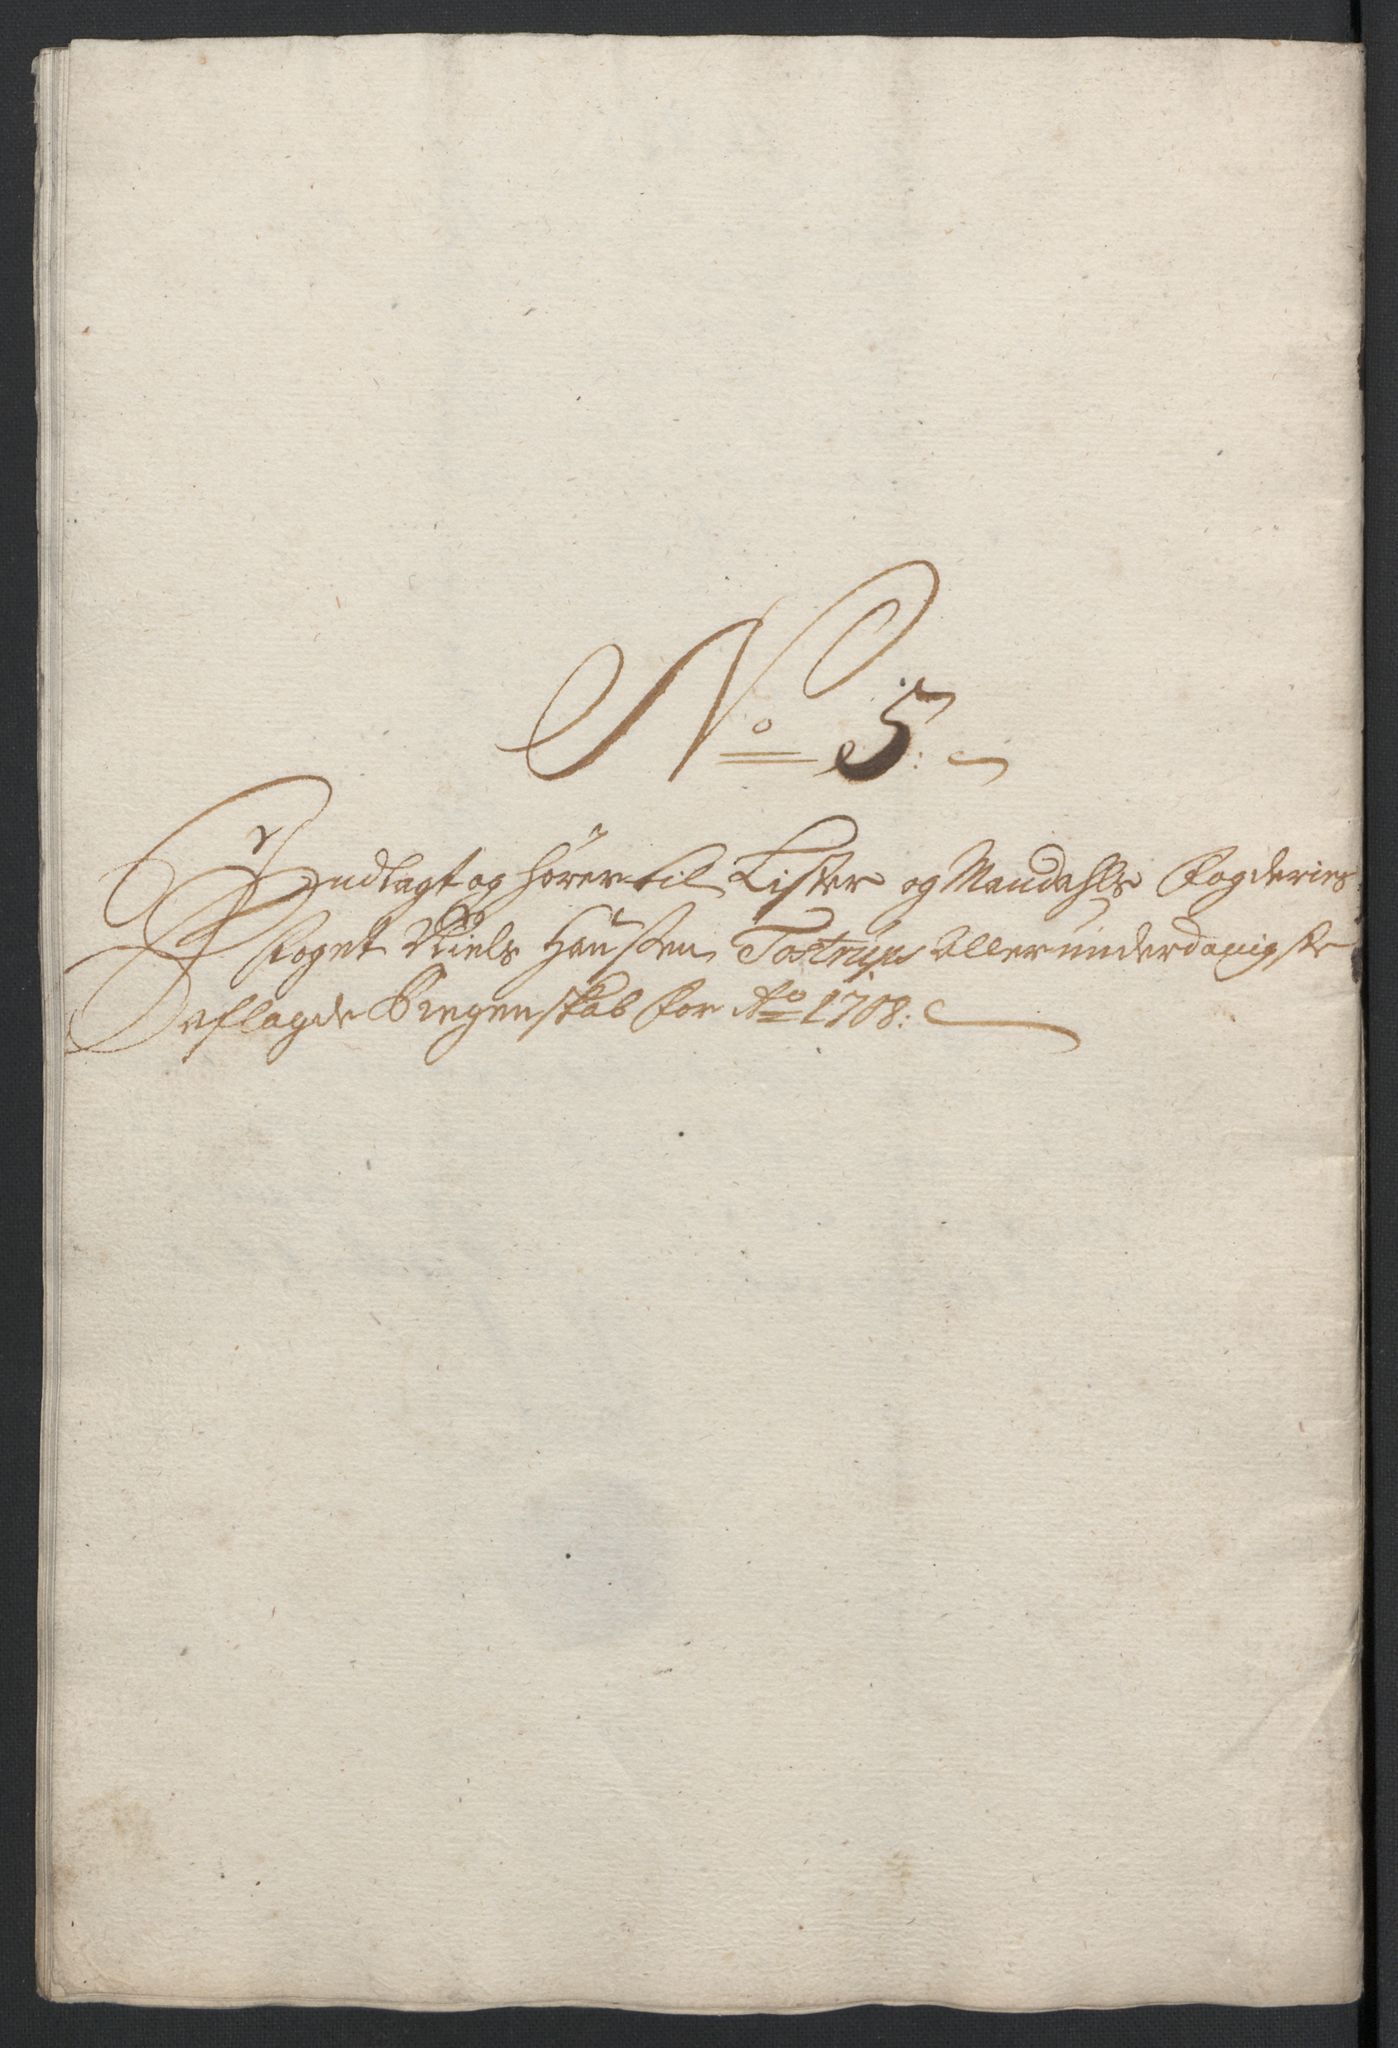 No 5:
Indlagt og hörer til Lister og Mandahls Fogderies
Foget Niels Hansen Tostrups Allerunderdanigste
aflagde Regenskab for Ao 1708: